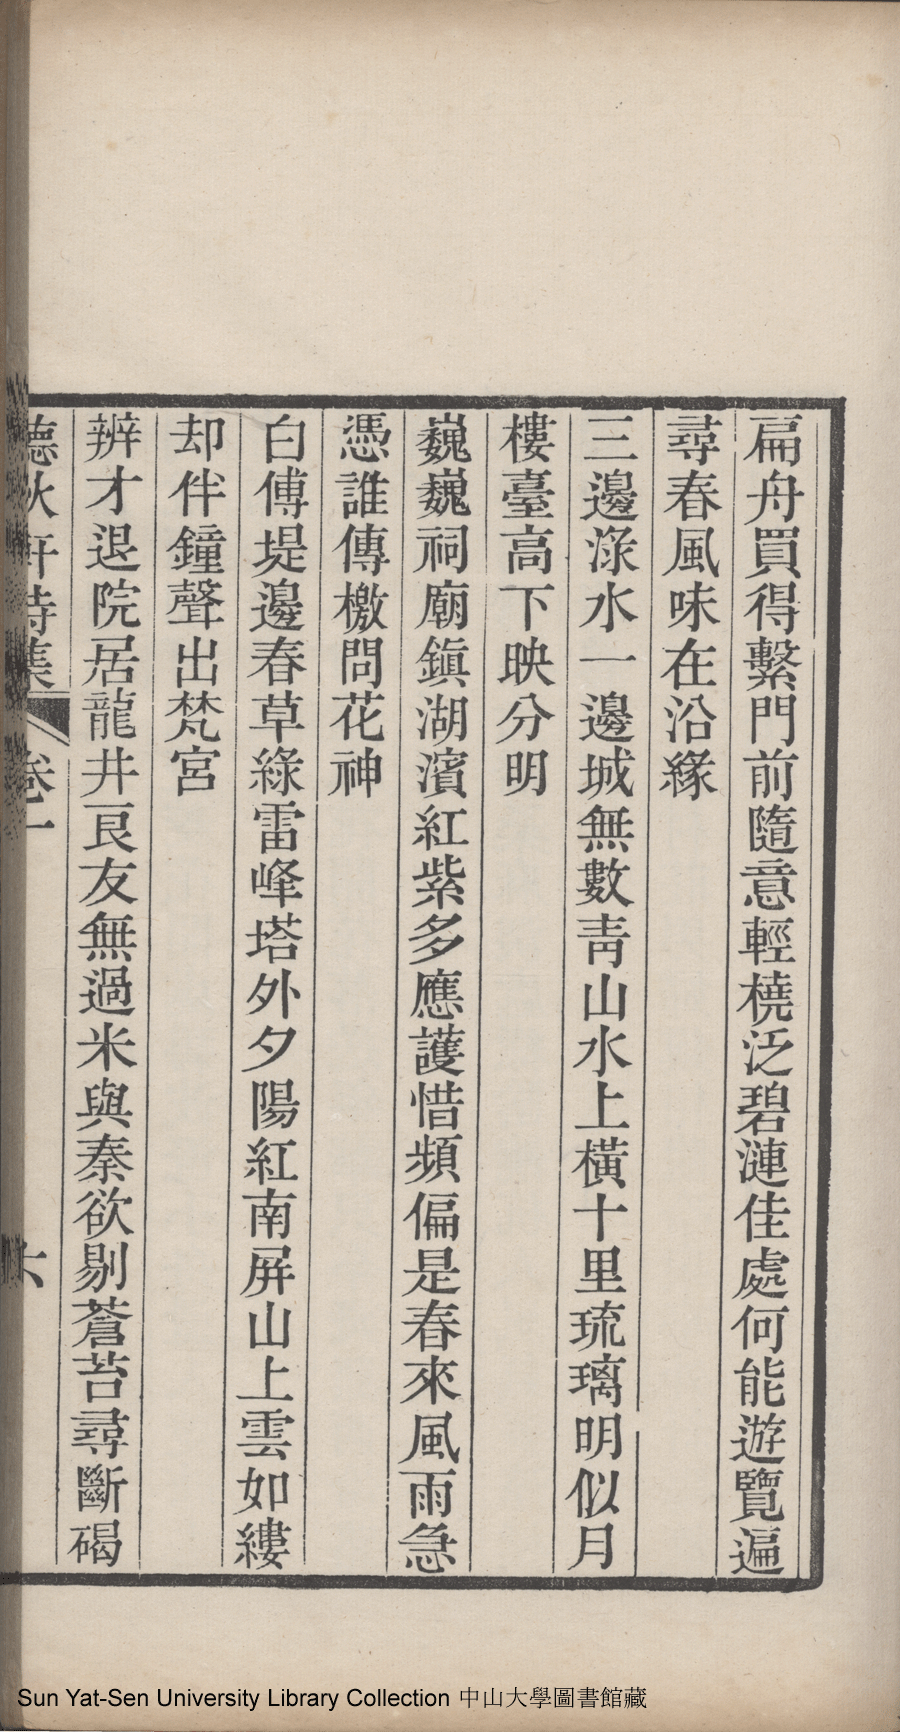 扁舟買得繫門前隨意輕橈泛碧漣佳處何能遊覽遍
尋春風味在沿緣
三邊淥水一邊城無數靑山水上橫十里琉璃明似月
樓臺高下映分明
巍巍祠廟鎭湖濱紅紫多應護惜頻偏是春來風雨急
憑誰傳檄問花神
白傅堤邊春草綠雷峰塔外夕陽紅南屛山上雲如縷
却伴鐘聲出梵宮
辨才退院居龍井良友無過米與秦欲剔蒼苔尋斷碣
聽秋軒詩集 卷一 六
Sun Yat-Sen University Library Collection 中山大學圖書館藏